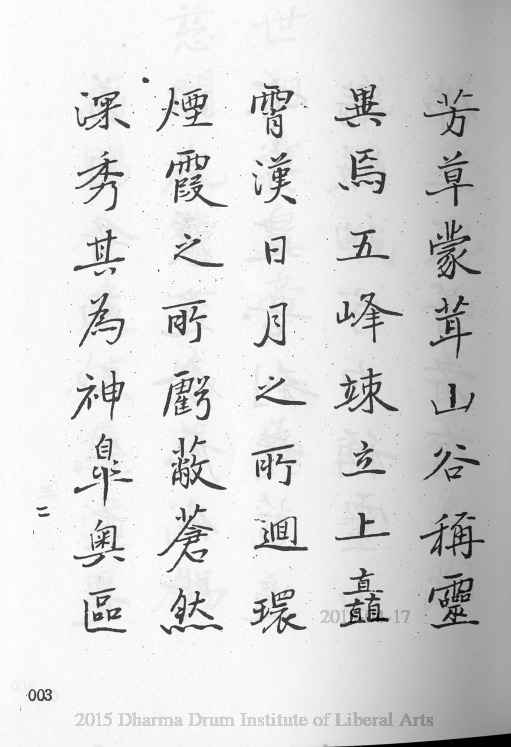 芳草蒙茸山谷稱靈
異焉五峰竦立上矗
霄漢日月之所迴環
煙霞之所虧蔽蒼然
深秀其為神皐奧區
二
003
2015 Dharma Drum Institute of Liberal Arts